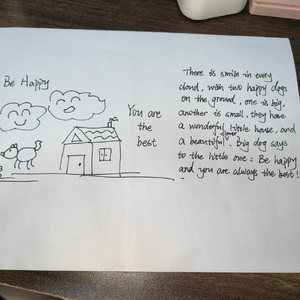 Be Happy
You are
the
best
There is smile in every
cloud, with two happy dogs
on the ground, one is big,
another is small, they have
a wonderful little house, and
a beautiful flower. Big dog says
to the little one: Be happy
and you are always the best!